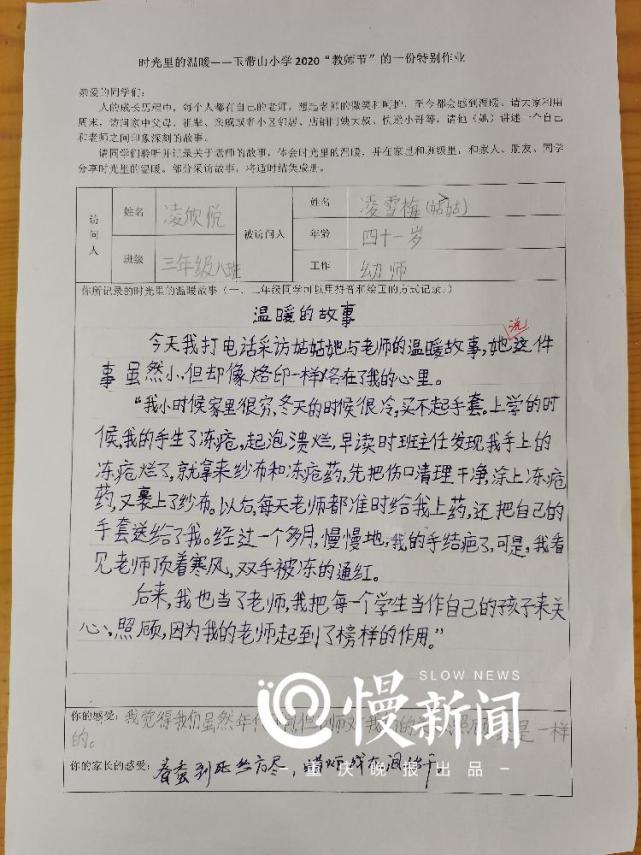 时光里的温暖——玉带山小学2020“教师节”的一份特别作业
亲爱的同学们:
人的成长历程中,每个人都有自己的老师,想起老师的微笑和呵护,至今都会感到温暖。请大家利用
周末,访问家中父母、祖辈、亲戚或者小区邻居、店铺门面大叔、快递小哥等,请他(她)讲述一个自己
和老师之间印象深刻的故事。
请同学们聆听并记录关于老师的故事,体会时光里的温暖,并在家里和班级里,和家人、朋友、同学
分享时光里的温暖。部分采访故事,将适时结集成册。
访问人 姓名 凌欣悦 被访问人 姓名 凌雪梅(姑姑)
年龄 四十一岁
班级 三年级八班 工作 幼师
你所记录的时光里的温暖故事(一、二年级同学可以用拼音和绘画的方式记录。)
温暖的故事
今天我打电话采访姑姑她与老师的温暖故事,她说这件
事虽然小,但却像烙印一样烙在了我的心里。
“我小时候家里很穷,冬天的时候很冷,买不起手套。上学的时
候,我的手生了冻疮,起泡溃烂,早读时班主任发现我手上的
冻疮烂了,就拿来纱布和冻疮药,先把伤口清理干净,涂上冻疮
药,又裹上了纱布。以后,每天老师都准时给我上药,还把自己的
手套送给了我。经过一个多月,慢慢地,我的手结疤了,可是,我看
见老师顶着寒风,双手被冻的通红。
后来,我也当了老师,我把每一个学生当作自己的孩子来关
心、照顾,因为我的老师起到了榜样的作用。”
SLOW NEWS
慢新闻
你的感受:我觉得我们虽然年代 是一样
的。
重庆晚报出品
你的家长的感受:春蚕到死丝方尽,